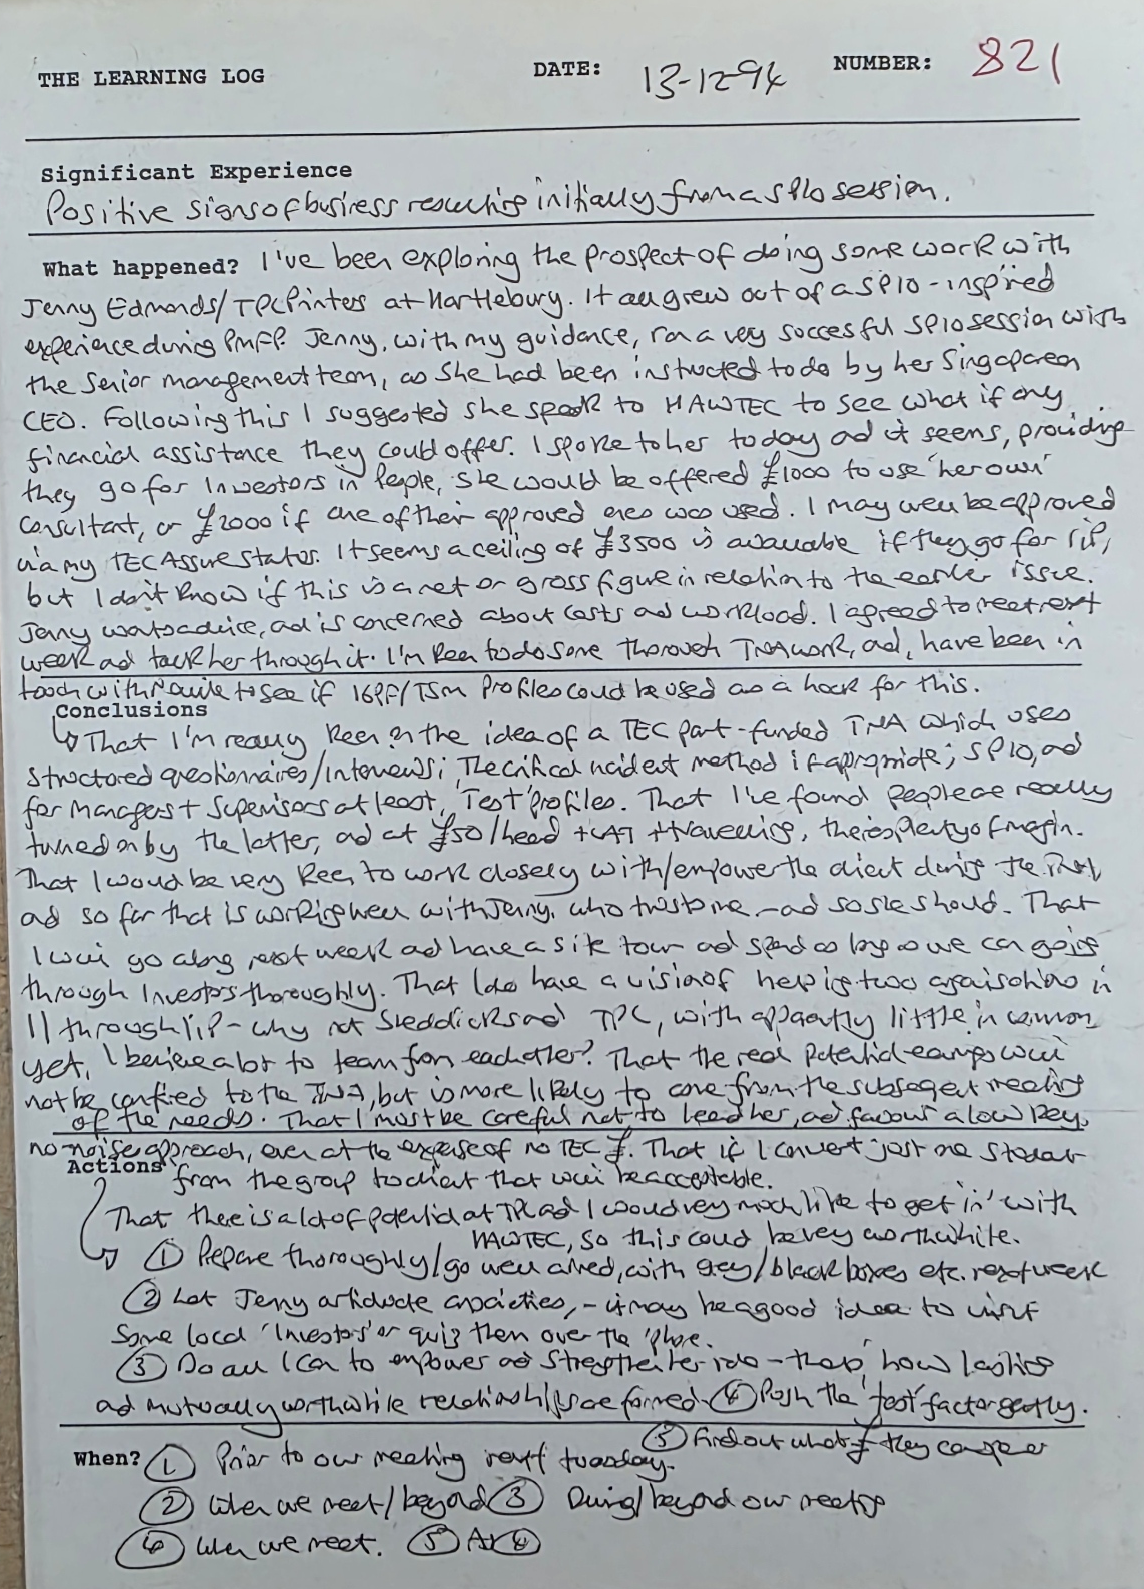 THE LEARNING LOG DATE: 13-12-94 NUMBER: 821
Significant Experience
Positive signs of business resulting initially from a SP10 session.
What happened? I've been exploring the prospect of doing some work with
Jenny Edmonds/TPC Printers at Hartlebury. It all grew out of a SP10-inspired
experience during PMFP. Jenny, with my guidance, ran a very succesful SP10 session with
the senior management team, as she had been instructed to do by her Singaporean
CEO. Following this I suggested she speak to HAWTEC to see what if any
financial assistance they could offer. I spoke to her today ad it seems, providing
they go for Investors in People, she would be offered £1000 to use 'her own'
consultant, or £2000 if one of their approved ones was used. I may well be approved
via my TEC Assure status. It seems a ceiling of £3500 is available if they go for IiP,
but I don't know if this is a net or gross figure in relation to the earlier issue.
Jenny wants advice, ad is concerned about costs ad workload. I agreed to meet next
week ad talk her through it. I'm keen to do some thorough TNA work, ad, have been in
touch with to see if 16PF/TSM Profiles could be used as a hook for this.
Conclusions
That I'm really keen on the idea of a TEC part-funded TNA which uses
structured questionnaires/interviews; the critical incident method if appropriate; SP10, ad
for managers + supervisors at least, 'Test' profiles. That I've found people are really
turned on by the latter, ad at £50/head + VAT + travelling, there's plenty of margin.
That I would be very keen to work closely with/empower the client during the TNA,
ad so far that is working well with Jenny, who trusts me - ad so she should. That
I will go along next week ad have a site tour ad spend as long as we can going
through Investors thoroughly. That I do have a vision of helping two organisations in
// through IiP - why not ad TPC, with apparently little in common
yet, I believe a lot to learn from each other? That the real potential earnings will
not be confined to the TNA, but is more likely to come from the subsequent meeting
of the needs. That I must be careful not to lead her, ad favour a low key,
no noise approach, even at the expense of no TEC £. That if I convert just one student
Actions from the group to client that will be acceptable.
That there is a lot of potential at TPC ad I would very much like to get 'in' with
HAWTEC, so this could be very worthwhile.
① Prepare thoroughly/go well armed, with grey/black boxes etc. next week
② Let Jenny articulate anxieties, - it may be a good idea to visit
some local 'Investors' or quiz them over the 'phone.
③ Do all I can to empower ad strengthen her role - that's how lasting
ad mutually worthwhile relationships are formed. ④ Push the 'test' factor gently.
⑤ Find out what £ they can offer
When? ① Prior to our meeting next tuesday.
② When we meet/beyond ③ During/beyond our meeting
④ When we meet. ⑤ As ④